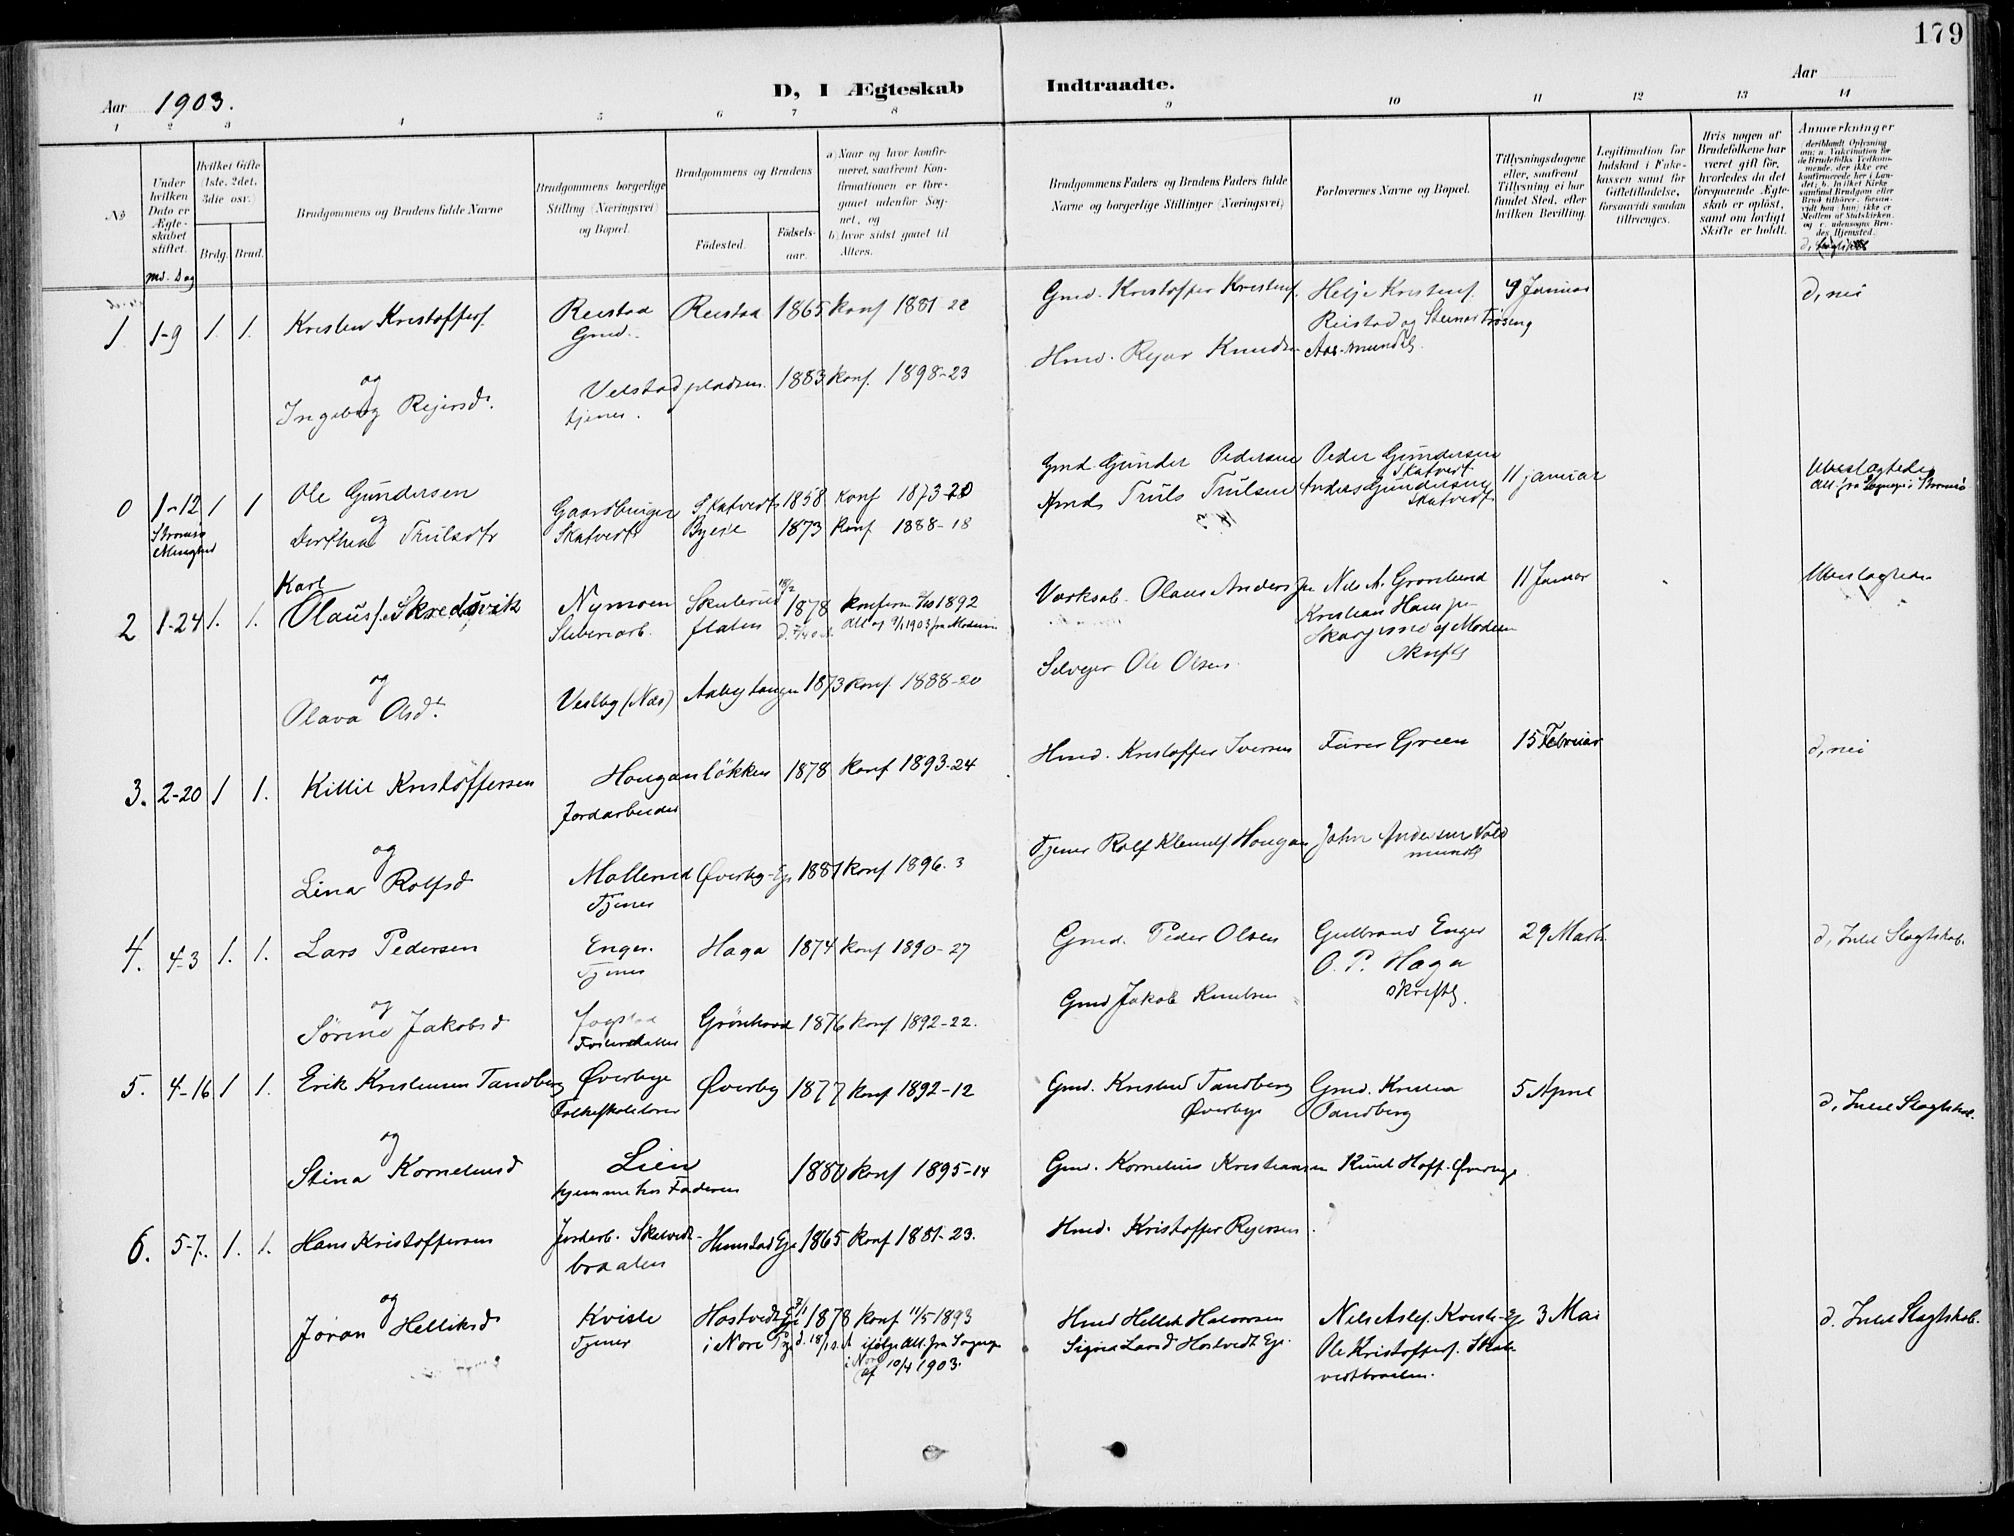 179
Aar 1903.
D, I Ægteskab Indtraadte.
Aar
1 2 3 4 5 6 7 8 9 10 11 12 13 14
No
Under hvilken Dato er Ægteskabet stiftet.
Md. Dag
Hvilket Gifte (1ste, 2det, 3die osv.)
Brdg. Brud.
Brudgommens og Brudens fulde Navne
Brudgommens borgerlige Stilling (Næringsvei) og Bopæl.
Brudgommens og Brudens
Fødested.
Fødselsaar.
a) Naar og hvor konfirmeret, saafremt Konfirmationen er foregaaet udenfor Sognet, og
b) hvor sidst gaaet til Alters.
Brudgommens Faders og Brudens Faders fulde Navne og borgerlige Stillinger (Næringsvei)
Forlovernes Navne og Bopæl.
Tillysningsdagene eller, saafremt Tillysning ei har fundet Sted, efter hvilken Bevilling.
Legitimation for Indskud i Enkekassen samt for Giftetilladelse, forsaavidt saadan tiltrænges.
Hvis nogen af Brudefolkene har været gift før, hvorledes da det foregaaende Ægteskab er opløst, samt om lovligt Skifte er holdt.
Anmerkninger
deriblandt Oplysning om: a. Vaccination for de Brudefolks Vedkommende, der ikke ere konfirmerede her i Landet; b. hvilket Kirkesamfund Brudgom eller Brud tilhører, forsaavidt han (hun) ikke er Medlem af Statskirken, og c. udensogns Brudes Hjemsted.
1 1-9 1. 1. Kristen Kristoffers. Reistad Reistad 1865 Konf 1881-22 Gmd. Kristoffer Kristens. Helje Kristens. 9 Januar d, nei
Gmd. Reistad og Steinar Frøseng
Hmd. Rejer Knudsen Aas. mundtl.
og
Ingeborg Rejersd. Velstadpladsen 1883 Konf. 1898-23
tjener.
0 1-12 1 1 Ole Gundersen Gaardbruger Skatvedt 1858 Konf 1873-20 Gmd Gunder Pedersen Peder Gundersen Skatvedt 11 januar Ubeslægtede
Strømsø Menighed
og
Dorthea Trulsdtr Skatvedt Byeie 1873 Konf 1888-18 Hmd Truls Trulsen Anders Gundersen Skatvedt
Karl
2 1-24 1. 1. Olaus s. Skredsvik Nymoen Skulerud 1878 Konferm 2/10 1892 Værksarb. Olaus Anders Nils A. Grønlund 11 Januar Ubeslægtede
Sliberiarb. flaten Att af 9/1 1903 fra Modum
Kristian Hans
af Modum
skriftl
og
Olava Olsdt. Vestby (Næs) Aabytangen 1873 Konf 1888-20 Selveger Ole Olsen.
3. 2-20 1 1. Kittil Kristoffersen Houganløkken 1878 Konf 1893-24 Hmd. Kristoffer Iversen Furer Green 15 Februar d, nei
Jordarbeider
og
Lina Rolfsd Mollerud Øverby-Eje 1881 Konf 1896. 3 Tjener Rolf Klemets Hougan John Andersen Vold
Tjener mundtl
4. 4-3 1. 1. Lars Pedersen Enger. Haga 1874 Konf 1890-27 Gmd. Peder Olsen Gulbrand Enger 29 Marts d, Intet Slagtskab.
Tjener O. P. Haga
skriftl.
og
Sørine Jakobsd Fogstad Grønhovd 1876 Konf 1892-22. Gmd Jakob Knudsen
5. 4-16 1 1. Erik Kristensen Tandberg Øverbye Øverby 1877 Konf 1892-12 Gmd. Kristen Tandberg Gmd. Kristen 5 April d, Intet Slagtskab.
Folkeskolelærer Øverbye Tandberg
og
Stina Korneliusd Lien 1880 Konf 1895-14 Gmd. Kornelius Kristiansen Knut Hoff. Øverbye
hjemme hos Faderen
6. 5-7. 1. 1. Hans Kristoffersen Jordarb. Skatvedt- Hunstad Eje 1865 Konf 1881-23. Hmd. Kristoffer Rejersen
braaten
og
Jøran Helliksd Kvisle Hostvedt Eje 1878 Konf 11/5 1893 Hmd Hellek Halvorsen Nils Aslefs. Kvisle-Eje 3 Mai d. Intet Slagtskab.
Tjener i Nore ifølge Att. fra Sognepr Signe Larsd Hostvedt Eje. Ole Kristoffers. Skat-
i Nore af 10/4 1903. vedtbraaten.